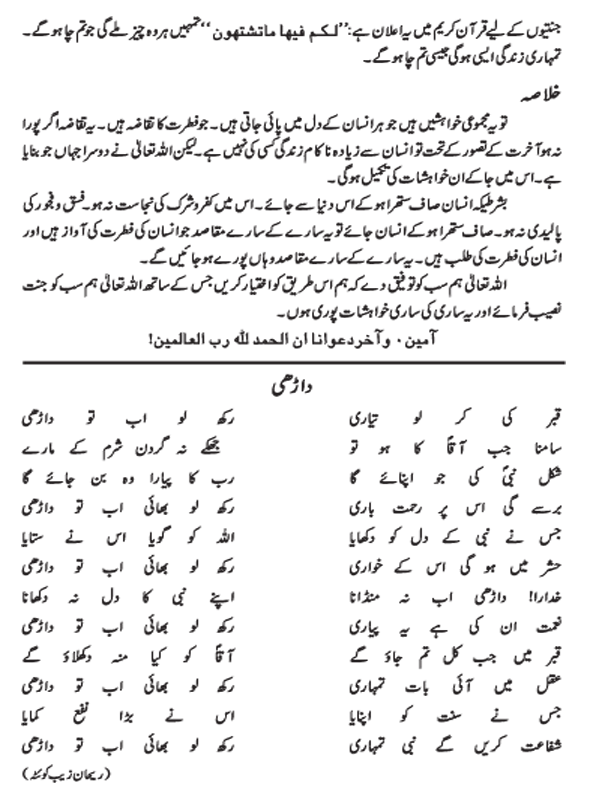 جنتیوں کے لیے قرآن کریم میں یہ اعلان ہے: ”لکم فیھا ماتشتھون“ تمہیں ہر وہ چیز ملے گی جو تم چاہو گے۔
تمہاری زندگی ایسی ہوگی جیسی تم چاہو گے۔
خلاصہ
تو یہ مجموعی خواہشیں ہیں جو ہر انسان کے دل میں پائی جاتی ہیں۔ جو فطرت کا تقاضہ ہیں۔ یہ تقاضہ اگر پورا
نہ ہو آخرت کے تصور کے تحت تو انسان سے زیادہ ناکام زندگی کسی کی نہیں ہے۔ لیکن اللہ تعالیٰ نے دوسرا جہاں جو بنایا
ہے۔ اس میں جا کے ان خواہشات کی تکمیل ہوگی۔
بشرطیکہ انسان صاف ستھرا ہو کے اس دنیا سے جائے۔ اس میں کفر و شرک کی نجاست نہ ہو۔ فسق و فجور کی
پالیدی نہ ہو۔ صاف ستھرا ہو کے انسان جائے تو یہ سارے کے سارے مقاصد جو انسان کی فطرت کی آواز ہیں اور
انسان کی فطرت کی طلب ہیں۔ یہ سارے کے سارے مقاصد وہاں پورے ہو جائیں گے۔
اللہ تعالیٰ ہم سب کو توفیق دے کہ ہم اس طریق کو اختیار کریں جس کے ساتھ اللہ تعالیٰ ہم سب کو جنت
نصیب فرمائے اور یہ ساری کی ساری خواہشات پوری ہوں۔
آمین۰ وآخر دعوانا ان الحمد للہ رب العالمین!
داڑھی
قبر کی کر لو تیاری رکھ لو اب تو داڑھی
سامنا جب آقاؐ کا ہو تو جھکے نہ گردن شرم کے مارے
شکل نبیؐ کی جو اپنائے گا رب کا پیارا وہ بن جائے گا
برسے گی اس پر رحمت باری رکھ لو بھائی اب تو داڑھی
جس نے نبی کے دل کو دکھایا اللہ کو گویا اس نے ستایا
حشر میں ہو گی اس کے خواری رکھ لو بھائی اب تو داڑھی
خدارا! داڑھی اب نہ منڈانا اپنے نبی کا دل نہ دکھانا
نعمت ان کی ہے یہ پیاری رکھ لو بھائی اب تو داڑھی
قبر میں جب کل تم جاؤ گے آقاؐ کو کیا منہ دکھلاؤ گے
عقل میں آئی بات تمہاری رکھ لو بھائی اب تو داڑھی
جس نے سنت کو اپنایا اس نے بڑا نفع کمایا
شفاعت کریں گے نبی تمہاری رکھ لو بھائی اب تو داڑھی
(ریحان زیب کوئٹہ)